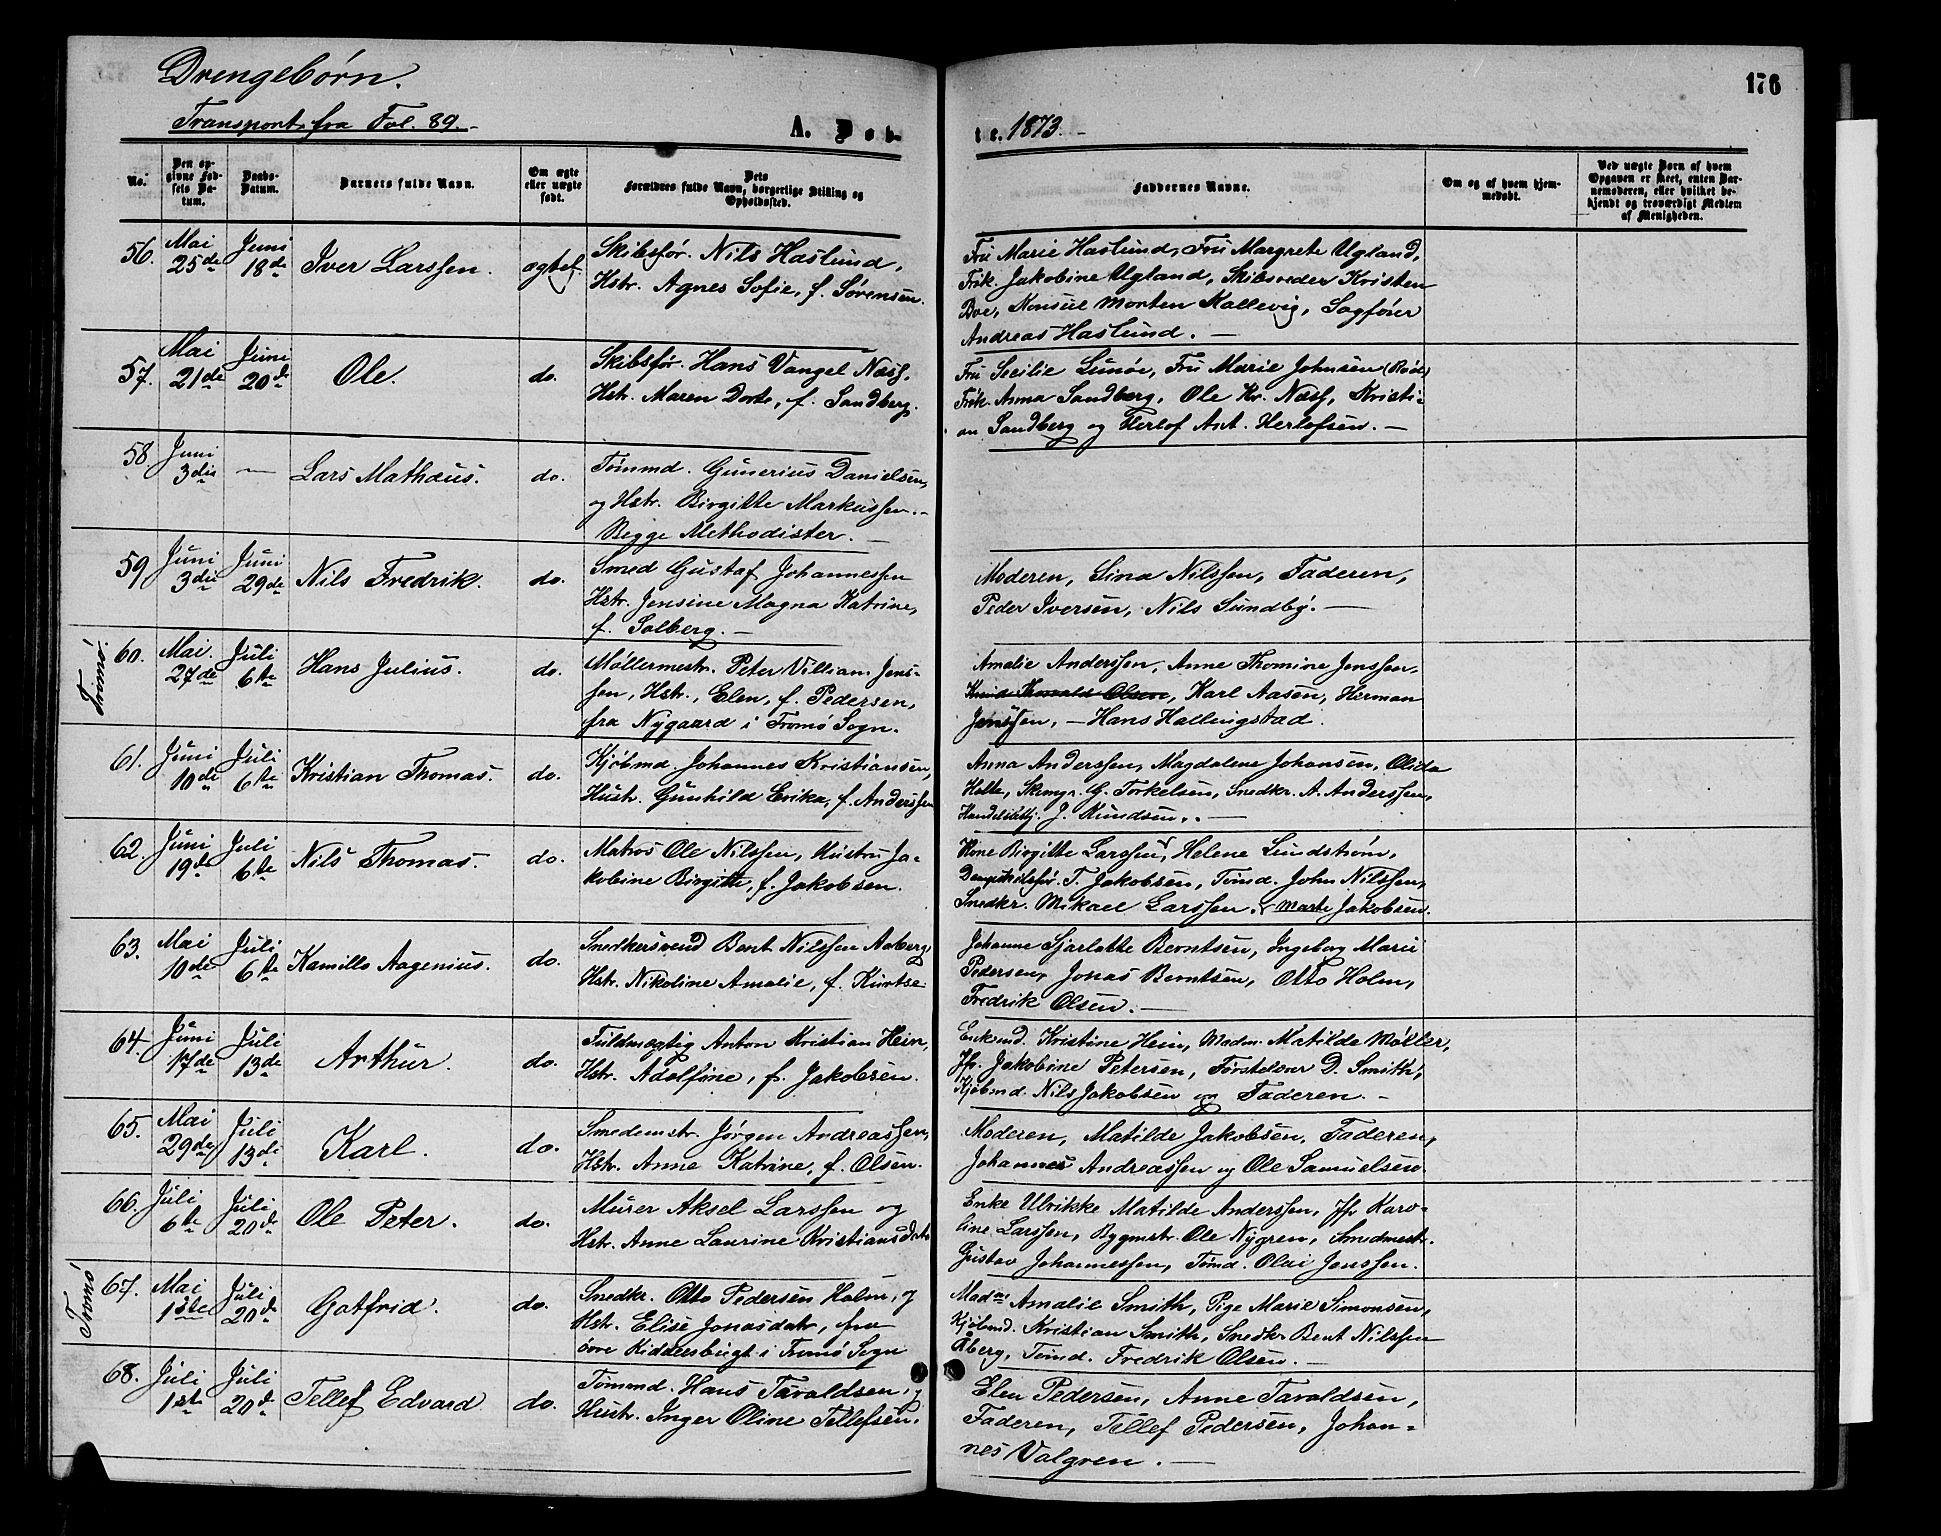 Drengebørn.
Transport fra Fol. 89.
A. Døb-
te. 1873.
176
No.
Den op-
givne Fød-
sels Da-
tum.
Daabs-
Datum.
Barnets fulde Navn.
Om ægte
eller uægte
født.
Dets
Forældres fulde Navn, borgerlige Stilling og
Opholdssted.
Faddernes Navne.
Om og af hvem hjem-
medøbt.
Ved uægte Børn af hvem
Opgaven er skeet, enten Bar-
nemoderen, eller hvilket be-
kjendt og troværdigt Medlem
af Menigheden.
56. Mai 25de Juni 18de Iver Larssen. ægtef.
Skibsfør. Nils Haslund,
Hstr. Agnes Sofie, f. Sørensen.
Fru Marie Haslund, Fru Margrete Ugland,
Frøk. Jakobine Ugland, Skibsreder Kristen
Boe, Konsul Morten Kallevig, Sagfører
Andreas Haslund. —
57. Mai 21de Juni 20de Ole. do.
Skibsfør. Hans Vangel Næss,
Hstr. Maren Dorte, f. Sandberg.
Fru Secilie Lunøe, Fru Marie Johnsen
Frøk. Anna Sandberg, Ole Kr. Næss, Kristi-
an Sandberg og Herlof Ant. Herlofsen. —
58 Juni 3die — Lars Mathæus. do.
Tømmd. Gunerius Danielsen,
og Hstr. Birgitte Markussen.-
Begge Methodister. —
59 Juni 3die Juni 29de Nils Fredrik. do.
Smed Gustaf Johannessen
Hstr. Jensine Magna Katrine,
f. Solberg. —
Moderen, Lina Nilssen, Faderen,
Peder Iversen, Nils Sundby. —
Tromø.
60. Mai. 27de Juli 6te Hans Julius. do.
Møllermestr. Peter Villiam Jens-
sen, Hstr., Elen, f. Pedersen,
fra Nygaard i Tromø Sogn.
Amalie Anderssen, Anne Thomine Jenssen,
Olsen, Karl Aasen, Herman
Jenssen, — Hans Hallingstad.
61. Juni 10de Juli 6te Kristian Thomas. do.
Kjøbmd. Johannes Kristiansen,
Hustr. Gunhild Erika, f. Anderssen
Anna Anderssen, Magdalene Johansen, Olida
Holte, G. Torkelsen, Snedkr. A. Anderssen,
J. Knudsen. —
62. Juni 19de Juli 6te Nils Thomas. do.
Matros Ole Nilssen, Hustru Ja-
kobine Birgitte, f. Jakobsen.
Kone Birgitte Larssen, Helene Lundstrøm,
Dampskibsfør. T. Jakobsen, Tømd. John Nilssen,
Snedkr. Mikael Larssen. Marte Jakobsen.
63. Mai 10de Juli 6te Kamillo Aagenius. do.
Snedkersvend Bent Nilssen Aaberg,
Hstr. Nikoline Amalie, f. Kurtse
Johanne Sjarlotte Berntsen, Ingeborg Marie
Pedersen, Jonas Berntsen, Otto Holm,
Fredrik Olsen. —
64. Juni 17de Juli 13de Arthur. do.
Fuldmægtig Anton Kristian Hein,
Hstr. Adolfine, f. Jakobsen.
Kristine Hein, Madm. Matilde Møller,
Jfr. Jakobine Petersen, Førstelærer D. Smith,
Kjøbmd. Nils Jakobsen og Faderen. -
65. Mai 29de Juli 13de Karl. do.
Smedemstr. Jørgen Andreassen,
Hstr. Anne Katrine, f. Olsen.
Moderen, Matilde Jakobsen, Faderen,
Johannes Andreassen og Ole Samuelsen.
66. Juli 6te Juli 20de Ole Peter. do.
Murer Aksel Larssen og
Hstr. Anne Laurine Kristiansdatr
Enke Ulrikke Matilde Anderssen, Jfr. Karo-
line Larssen, Bygmstr. Ole Nygren, Smedmestr.
Gustav Johannessen, Tømd. Olai Jenssen.
Tromø
67. Mai 1ste Juli 20de Gotfrid. do.
Snedkr. Otto Pedersen Holm, og
Hstr. Elise Jonasdatr, fra
øvre Kiddelsbugt i Tromø Sogn
Madme Amalie Smith, Pige Marie Simonsen,
Kjøbmd. Kristian Smith, Snedkr Bent Nilssen
Åberg, Tømd. Fredrik Olsen. —
68. Juli 1ste Juli 20de Tellef Edvard do.
Tømmd. Hans Taraldsen, og
Hustr. Inger Oline Tellefsen.
Elen Pedersen, Anne Taraldsen,
Faderen, Tellef Pedersen, Johan-
nes Valgren. —